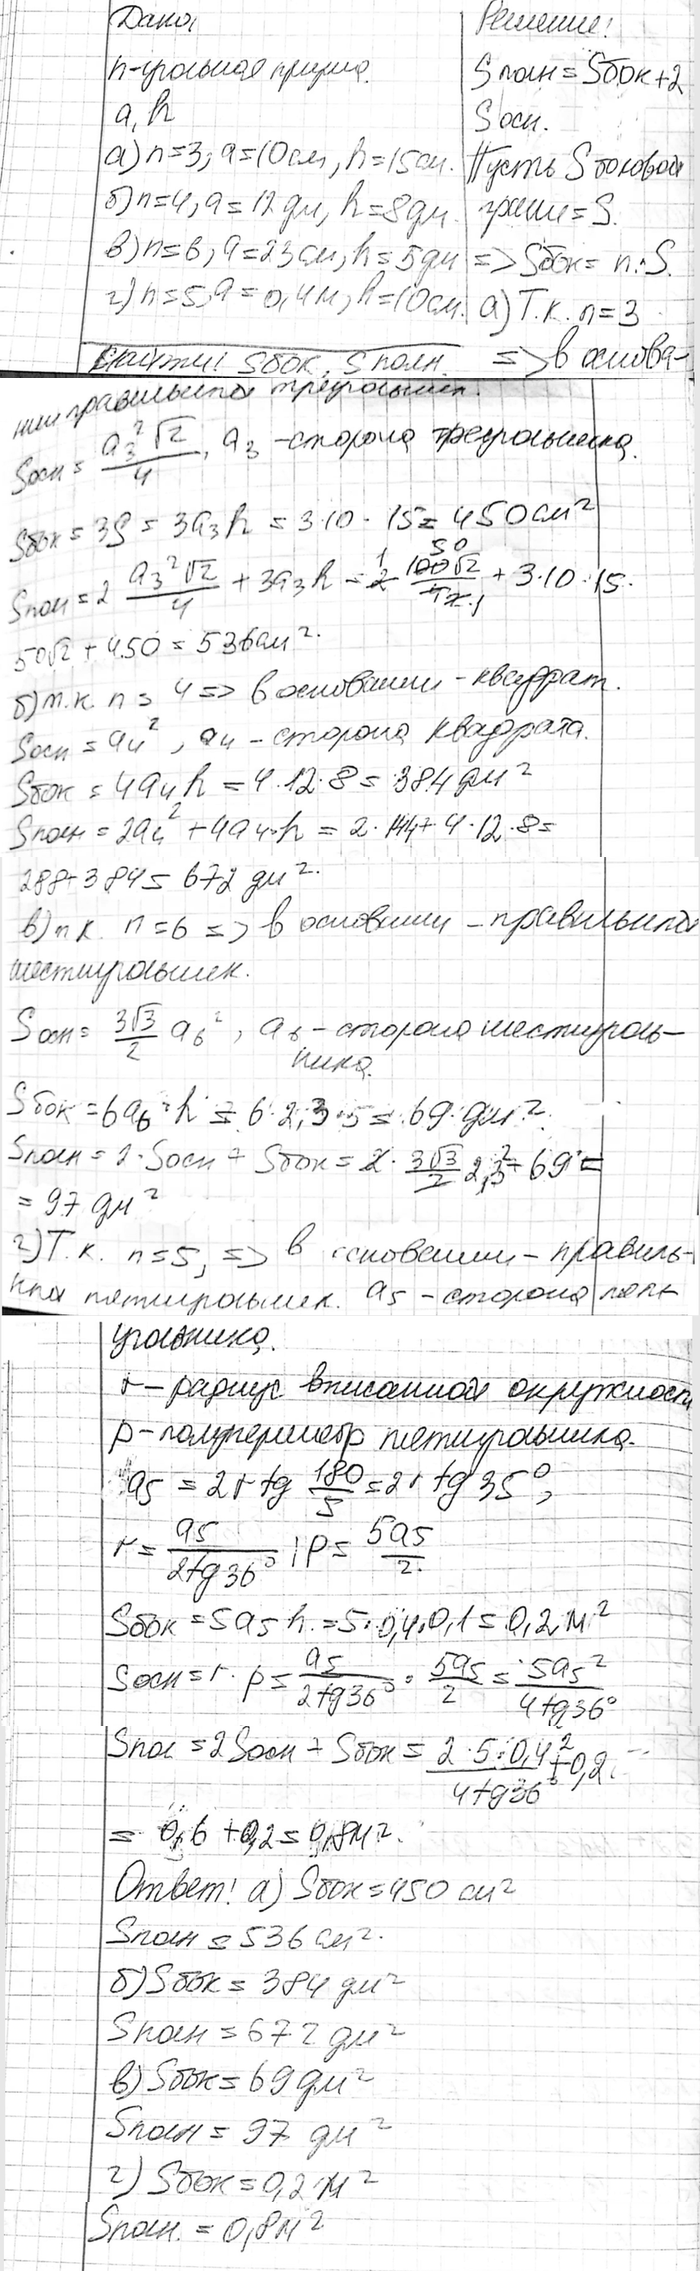 Дано:
n-угольная призма.
a, h
а) n=3, a=10см, h=15см.
б) n=4, a=12дм, h=8дм.
в) n=6, a=23см, h=5дм
г) n=5, a=0,4м, h=10см.
Найти: Sбок, Sполн.
Решение:
Sполн=Sбок+2
Sосн.
Пусть S боковой
грани=S.
=> Sбок= n·S.
а) Т.к. n=3
=> в основа-
нии правильный треугольник.
Sосн = a₃²√2/4, a₃ -сторона треугольника.
Sбок = 3S = 3a₃h = 3·10·15= 450см²
Sполн = 2 a₃²√2/4 + 3a₃h = 2 100√2/4 + 3·10·15.
50√2 + 450 = 536см².
б) т.к. n = 4 => в основании - квадрат.
Sосн = a₄², a₄ - сторона квадрата.
Sбок = 4a₄h = 4·12·8 = 384дм²
Sполн = 2a₄² + 4a₄·h = 2·144+4·12·8=
288+384= 672 дм².
в) т.к. n=6 => в основании - правильный
шестиугольник.
Sосн= 3√3/2 a₆², a₆ - сторона шестиуголь-
ника.
Sбок = 6a₆·h = 6·2,3·5 = 69 дм².
Sполн = 2·Sосн + Sбок = 2· 3√3/2 2,3²+69=
= 97 дм²
г) Т.к. n=5, => в основании - правиль-
ный пятиугольник. a₅ - сторона пяти
угольника.
r - радиус вписанной окружности
p - полупериметр пятиугольника.
a₅ = 2r tg 180/5 = 2r tg 35°,
r= a₅/2tg36° ; P= 5a₅/2.
Sбок = 5a₅h = 5·0,4·0,1= 0,2м²
Sосн = r·p = a₅/2tg36° · 5a₅/2 = 5a₅²/4tg36°
Sпол = 2Sосн + Sбок = 2·5·0,4²/4tg36° +0,2=
= 0,6 + 0,2 = 0,8м².
Ответ: а) Sбок = 450 см²
Sполн = 536 см².
б) Sбок = 384 дм²
Sполн = 672 дм²
в) Sбок = 69 дм²
Sполн = 97 дм²
г) Sбок = 0,2 м²
Sполн. = 0,8м²